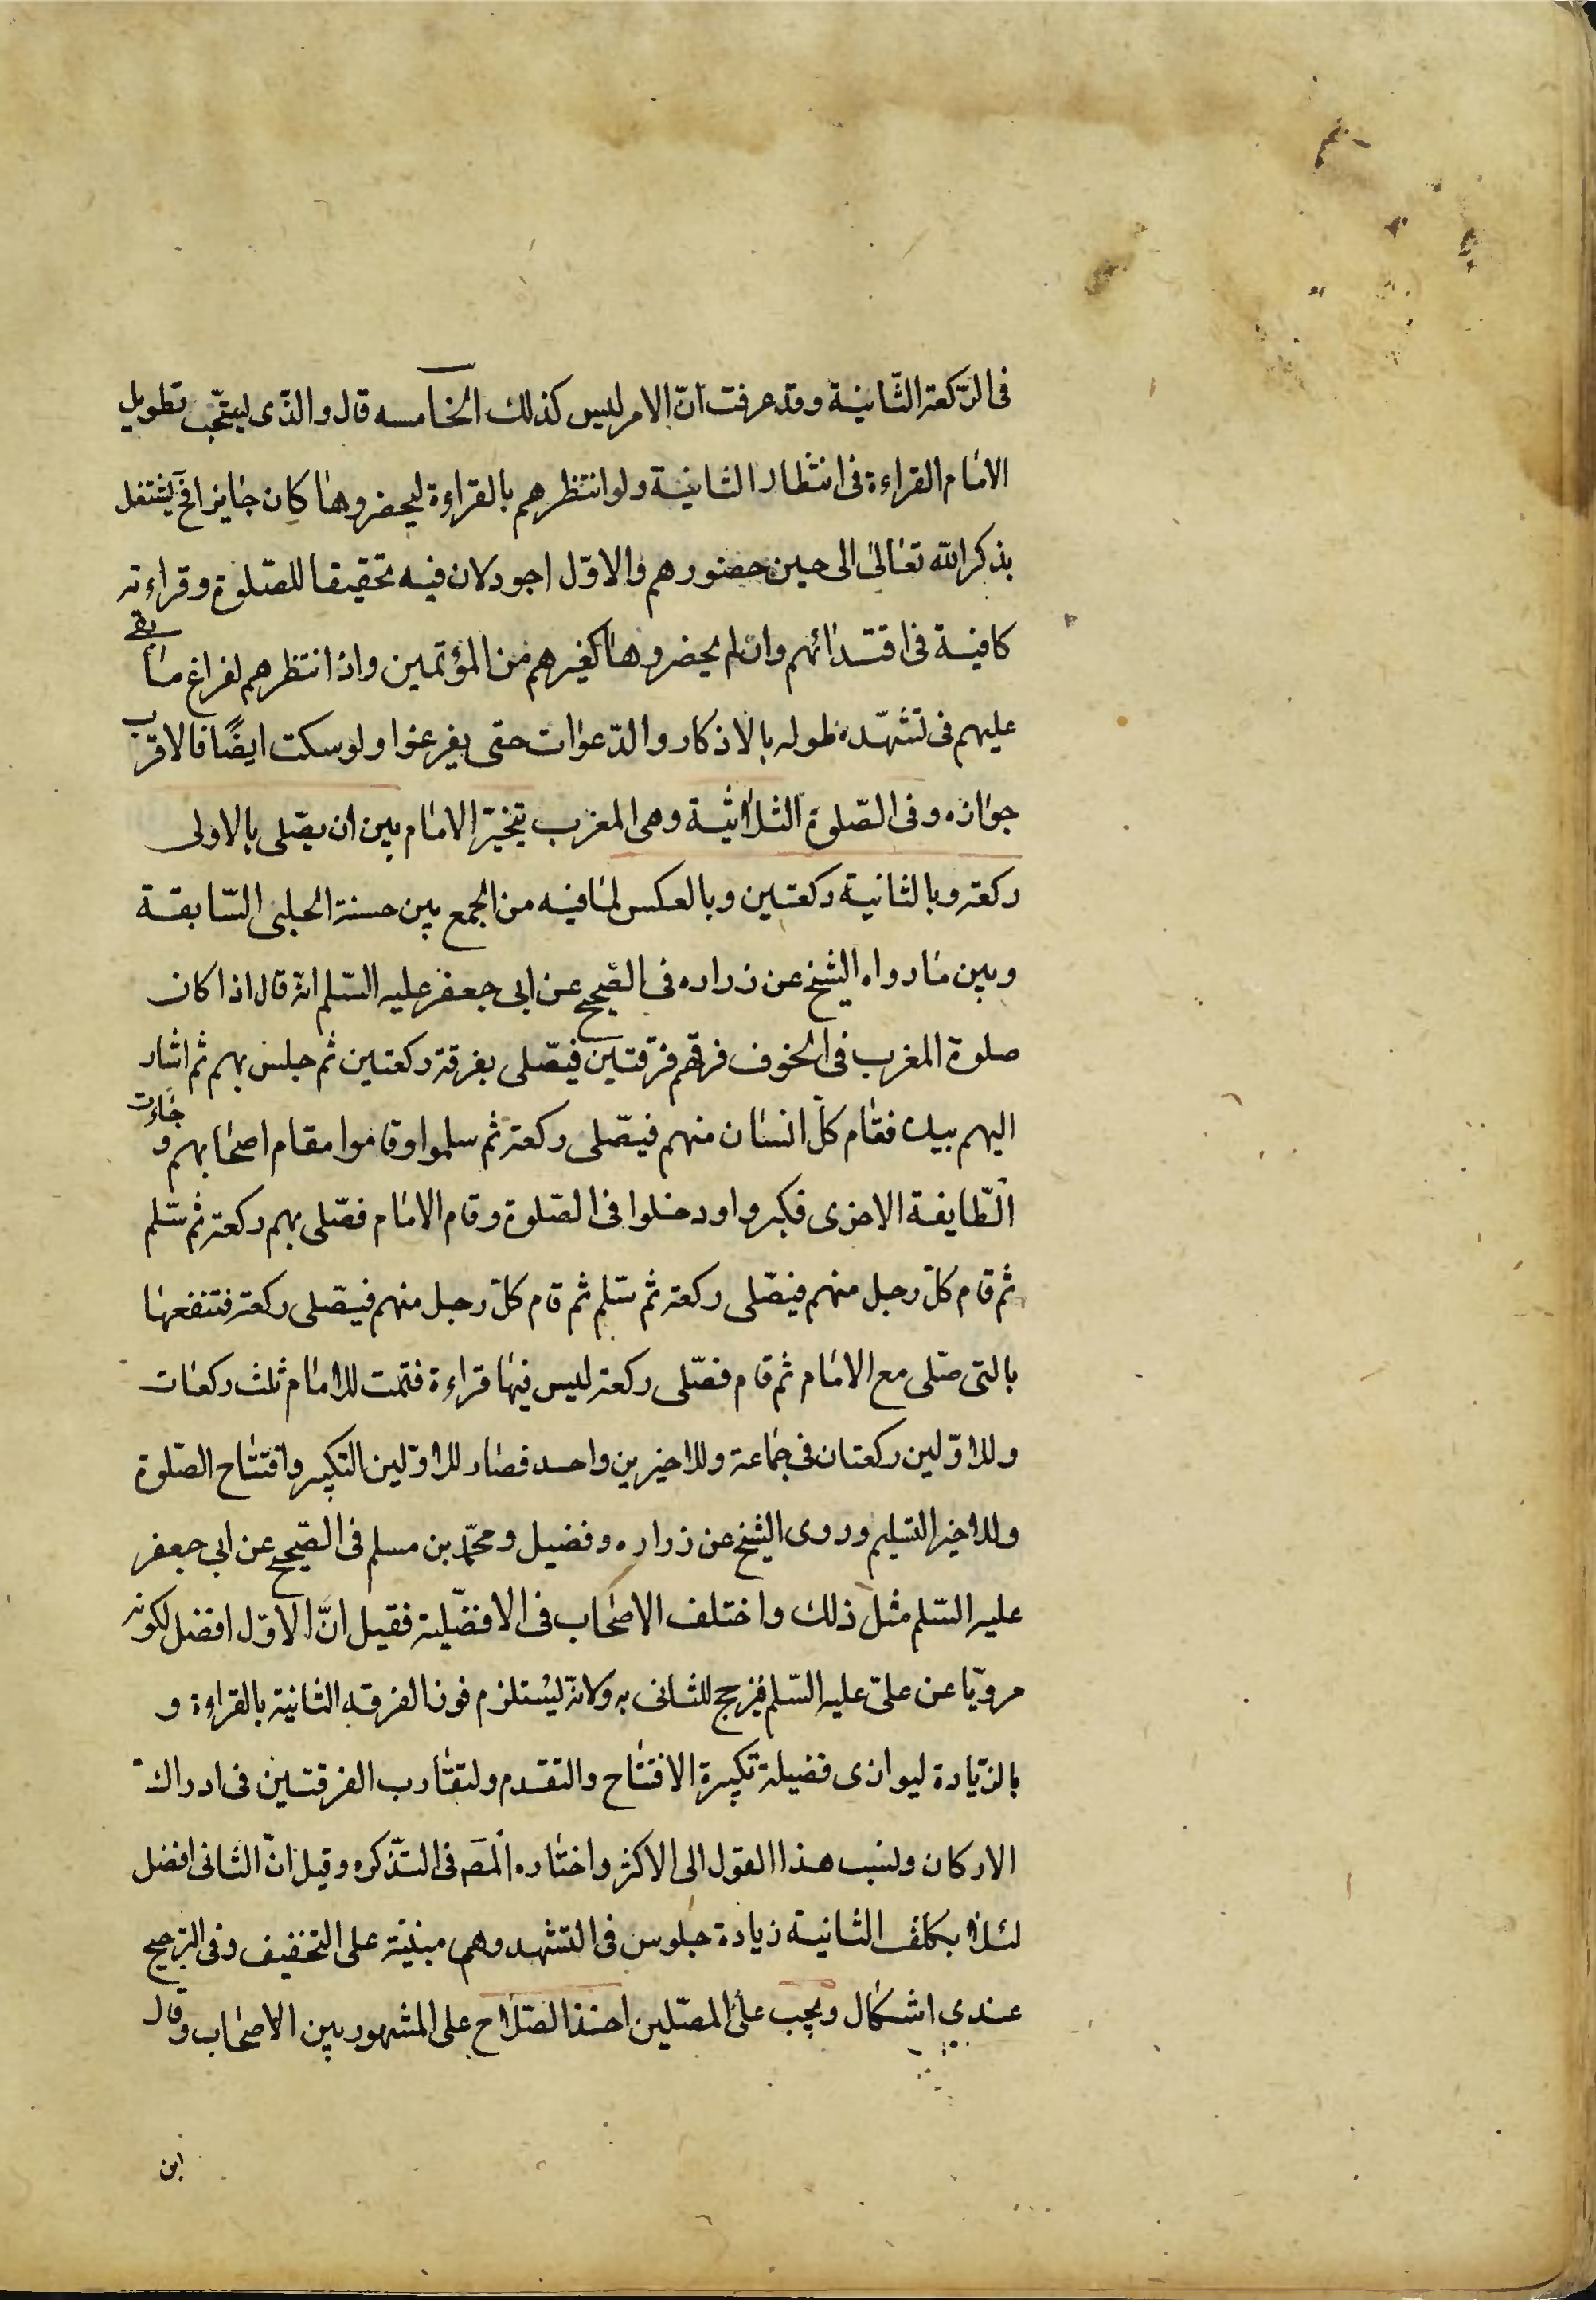 فى الرّكعة الثّانية وقد عرفت انّ الامر ليس كذلك الخامسه قال والذّى يستحّب تطويل
الامام القراءة فى انتظار الثانية ولو انتظرهم بالقراءة ليحضروها كان جايزا فح يشتغل
بذكر الله تعالى الى حين حضورهم والاوّل اجود لان فيه تحقيقا للصّلوة وقراءته
كافية فى اقتدائهم وان لم يحضروها كغيرهم من المؤتمين واذا انتظرهم لفراغ ما بقى
عليهم فى تشهّده طوله بالاذكار والدّعوات حتى يفرغوا ولو سكت ايضًا فالاقرب
جوازه وفى الصّلوة الثلاثية وهى المغرب يتخيّر الامام بين ان يصّلى بالاولى
ركعة وبالثانية ركعتين وبالعكس لما فيه من الجمع بين حسنة الحلبى السّابقة
وبين ما رواه الشيخ عن زراره فى الصّحيح عن ابى جعفر عليه السّلم انّه قال اذا كان
صلوة المغرب فى الخوف فرقهم فرقتين فيصّلى بفرقة ركعتين ثم جلس بهم ثم اشار
اليهم بيده فقام كلّ انسان منهم فيصّلى ركعة ثم سلموا وقاموا مقام اصحابهم و جاءت
الطّايفة الاخرى فكبروا ودخلوا فى الصّلوة وقام الامام فصّلى بهم ركعة ثم سّلم
ثم قام كلّ رجل منهم فيصّلى ركعة ثم سّلم ثم قام كلّ رجل منهم فيصّلى ركعة فتنفعها
بالتى صّلى مع الامام ثم قام فصّلى ركعة ليس فيها قراءة فتمت للامام ثلث ركعات
وللاوّلين ركعتان فى جماعة وللاخيرين واحد فصار للاوّلين التكبير وافتتاح الصّلوة
وللاخير التسليم وروى الشيخ عن زراره وفضيل ومحمّد بن مسلم فى الصّحيح عن ابى جعفر
عليه السّلم مثل ذلك واختلف الاصحاب فى الافضّلية فقيل انّ الاوّل افضل لكونه
مروّيا عن علىّ عليه السّلم فيرجح للثانى به ولانّه يستلزم فوز الفرقه الثانية بالقراءة و
بالزّيادة ليوازى فضيلة تكبيرة الافتتاح والتقدم ولتقارب الفرقتين فى ادراك
الاركان ونسب هذا القول الى الاكثر واختاره المصَ فى التّذكره وقيل انّ الثانى افضل
لئلا يكلف الثانية زيادة جلوس فى التشهد وهى مبنيّة على التخفيف وفى الترجيح
عندي اشكال ويجب على المصّلين اخذ السّلاح على المشهور بين الاصحاب وقال
ابن